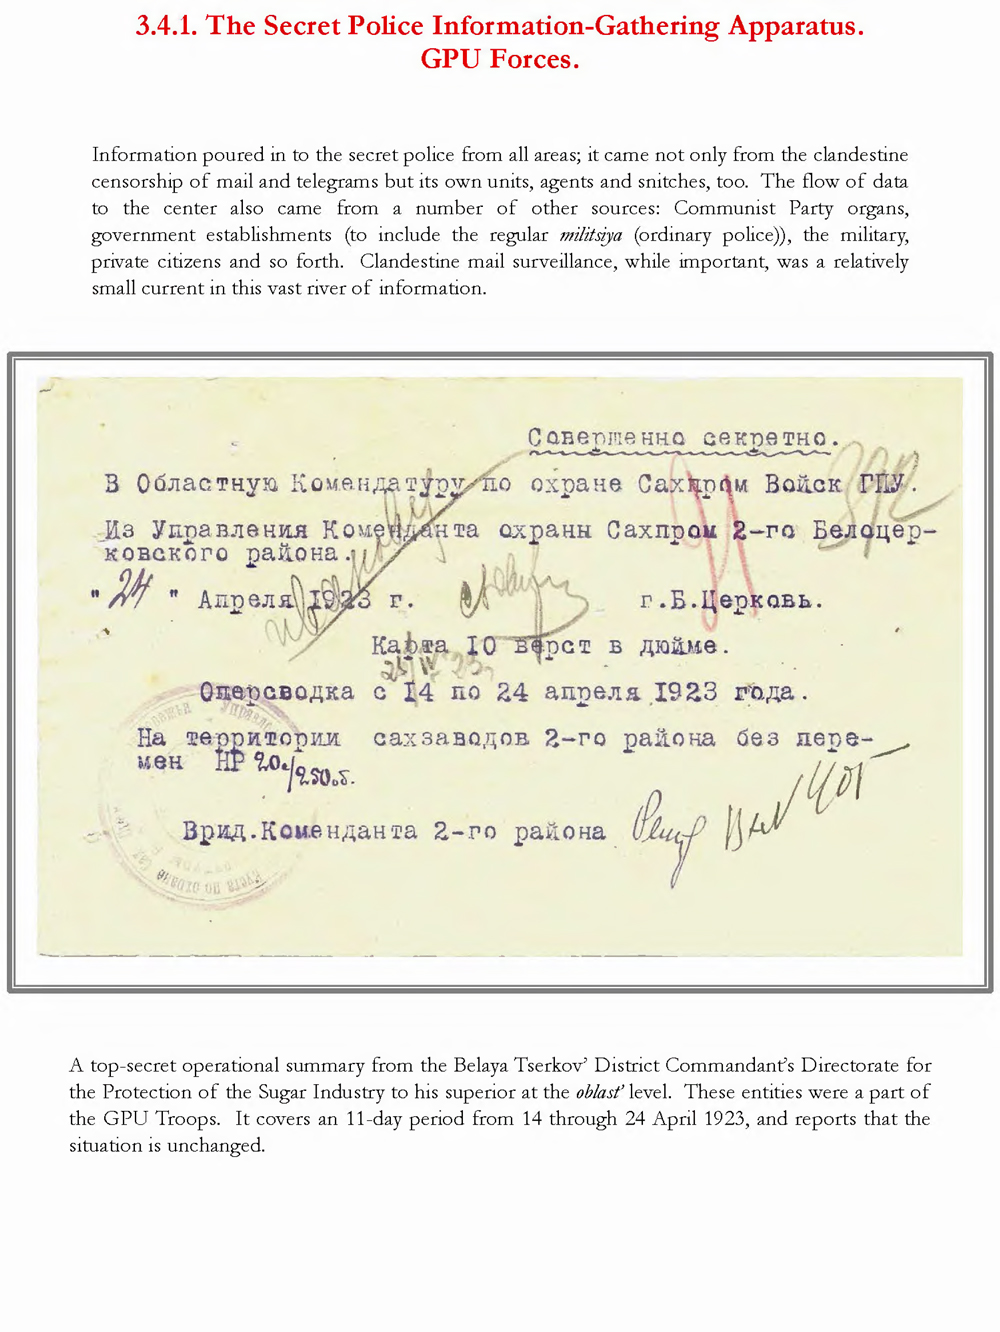 3.4.1. The Secret Police Information-Gathering Apparatus.
GPU Forces.
Information poured in to the secret police from all areas; it came not only from the clandestine
censorship of mail and telegrams but its own units, agents and snitches, too. The flow of data
to the center also came from a number of other sources: Communist Party organs,
government establishments (to include the regular militsiya (ordinary police)), the military,
private citizens and so forth. Clandestine mail surveillance, while important, was a relatively
small current in this vast river of information.
Совершенно секретно.
В Областную Комендатуру по охране Сахпром Войск ГПУ.
Из Управления Коменданта охраны Сахпром 2-го Белоцер-
ковского района.
"24" Апреля 1923 г. г.Б.Церковь.
Карта 10 верст в дюйме.
Оперсводка с 14 по 24 апреля 1923 года.
На территории сахзаводов 2-го района без пере-
мен НР
Врид.Коменданта 2-го района
A top-secret operational summary from the Belaya Tserkov' District Commandant's Directorate for
the Protection of the Sugar Industry to his superior at the oblast' level. These entities were a part of
the GPU Troops. It covers an 11-day period from 14 through 24 April 1923, and reports that the
situation is unchanged.